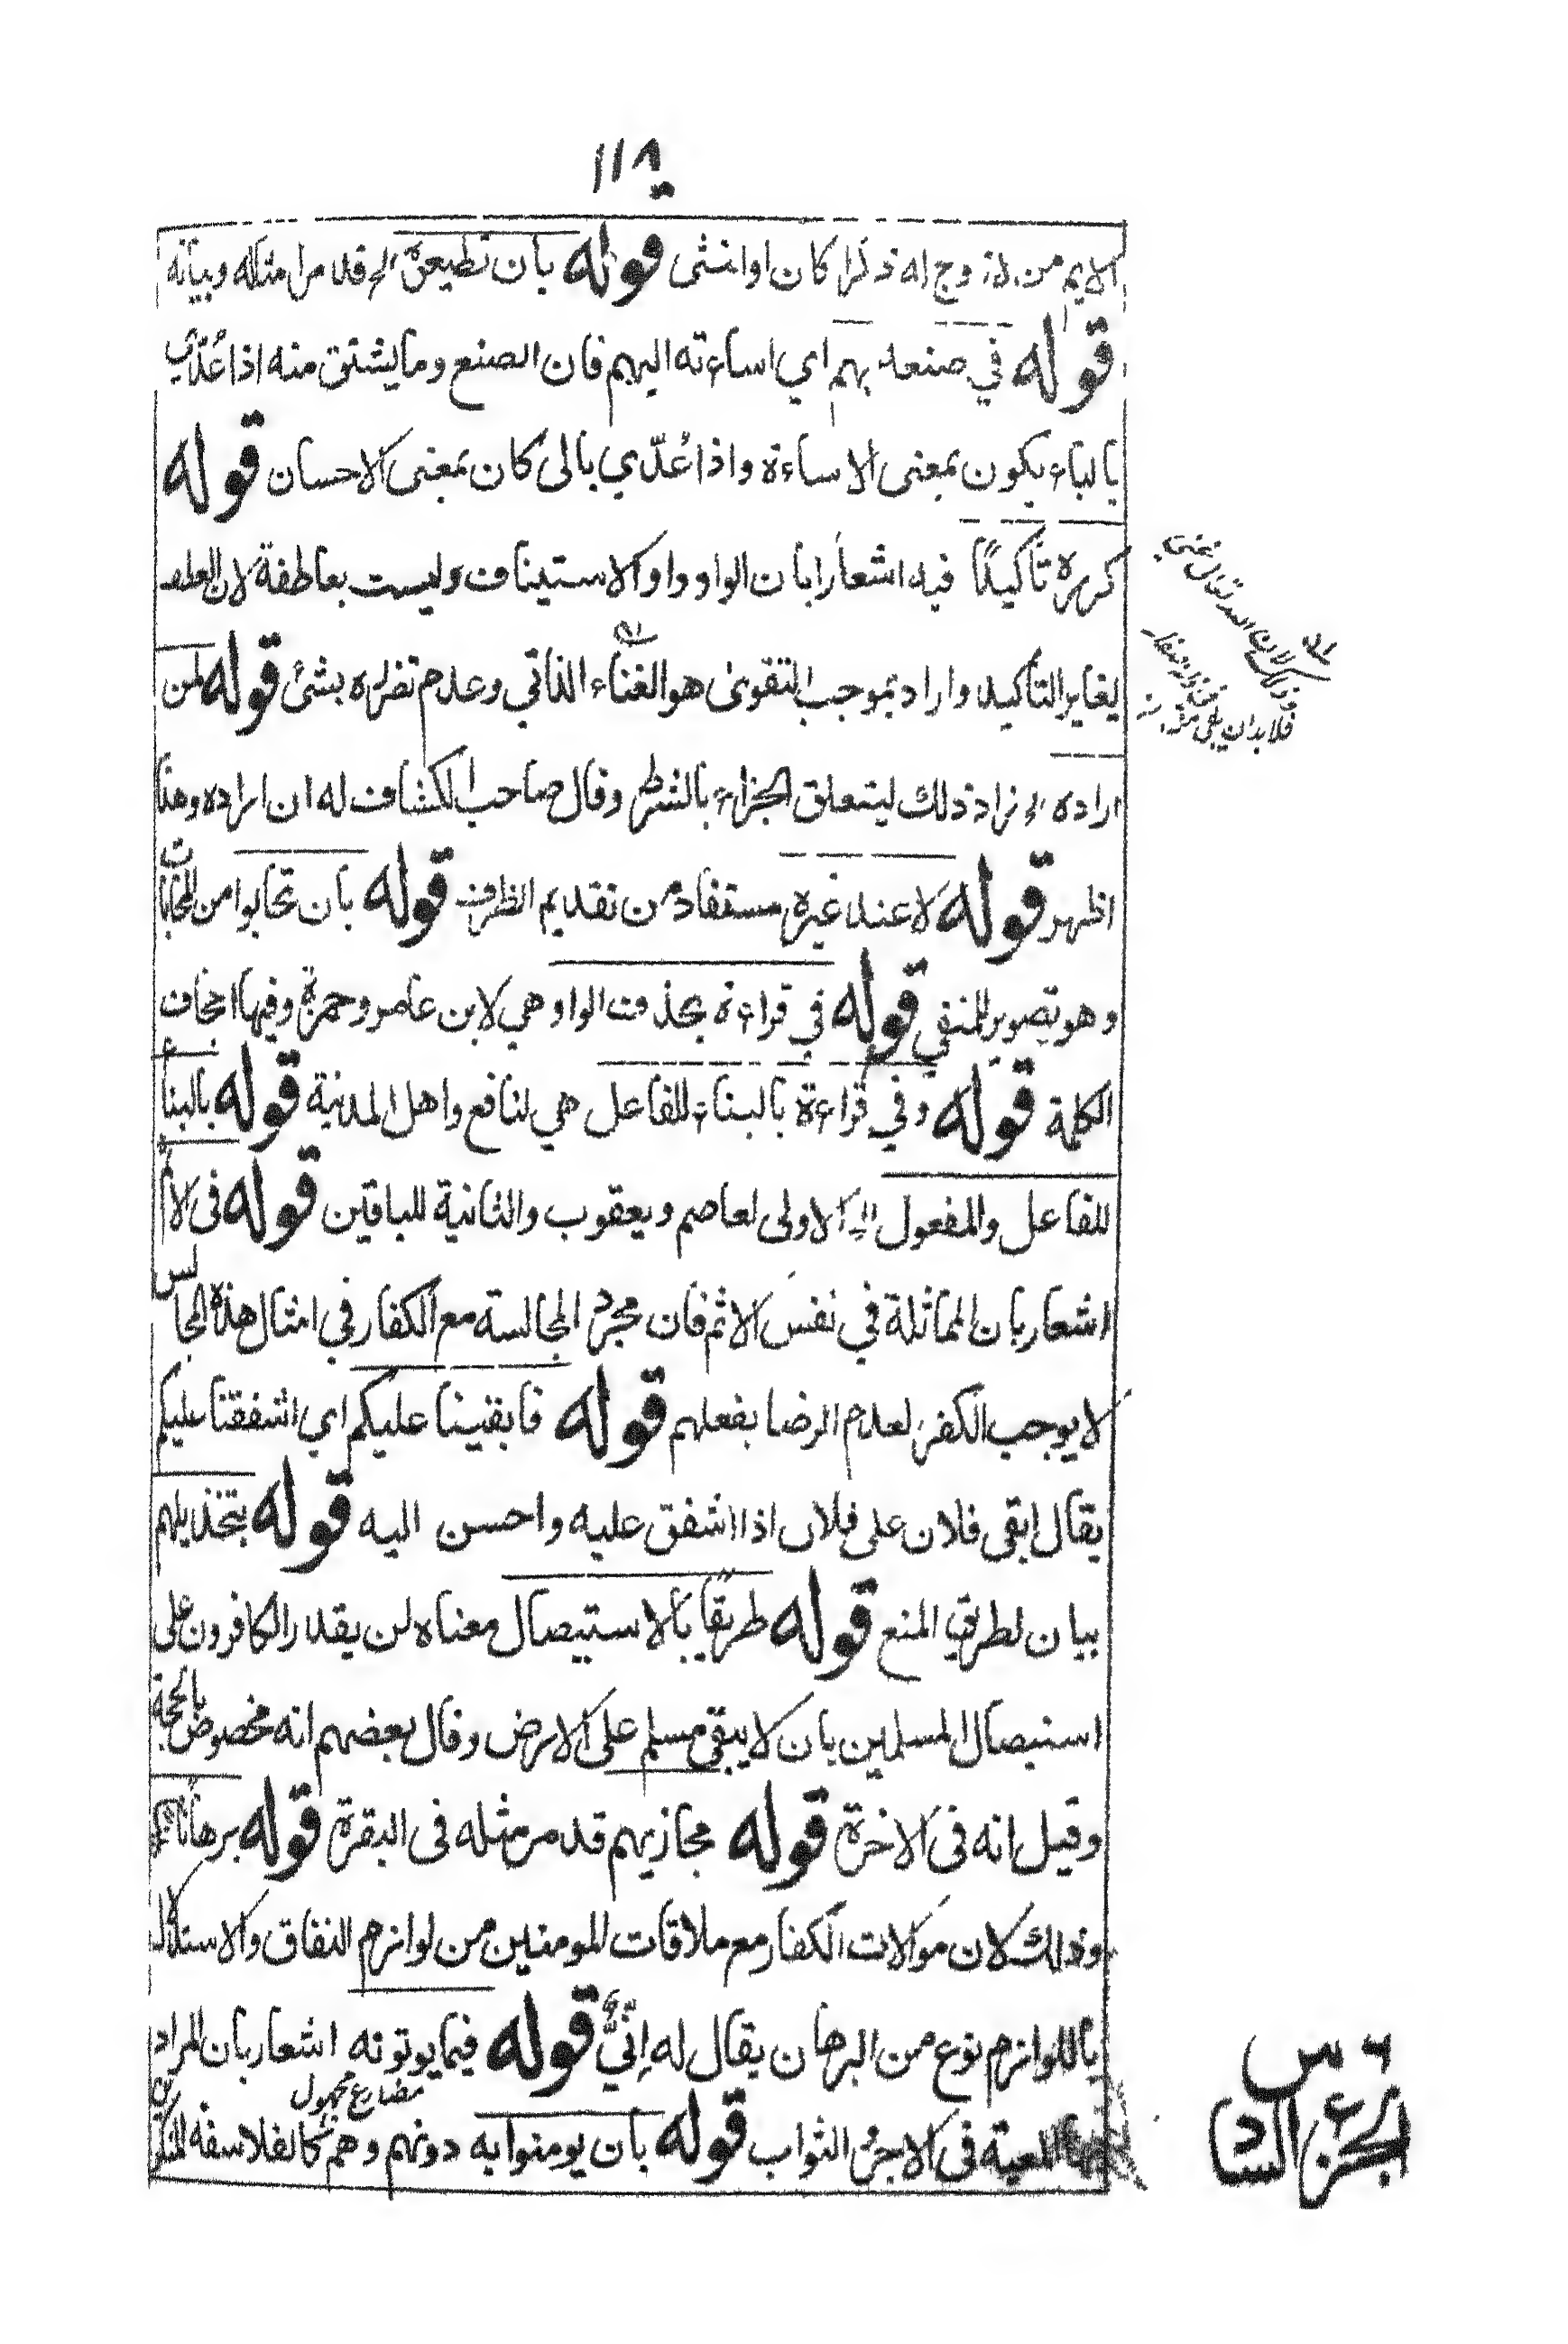 ١١٨
الايم من لا زوج له ذكرا كان او انثى قوله بان تطيعوه الخ قد مر امثاله وبيانه
قوله في صنعه بهم اي اساءته اليهم فان الصنع وما يشتق منه اذا عُدّي
بالباء يكون بمعنى الاساءة واذا عُدّي بالى كان بمعنى الاحسان قوله
كرره تأكيدًا فيه اشعار ابان الواو واو الاستيناف وليست بعاطفة لان العطف
يغاير التأكيد واراد بموجب التقوى هو الغناء الذاتي وعدم تضرره بشئ قوله لمن
اراده الخ زاد ذلك ليتعلق الجزاء بالشرط وقال صاحب الكشاف له ان اراده وهذا
اظهر قوله لا عند غيره مستفاد من تقديم الظرف قوله بان تحابوا من المحابات
وهو تصوير للمنفي قوله في قراءة بحذف الواو وهي لابن عامر وحمزة وفيها اجحاف
الكلمة قوله وفي قراءة بالبناء للفاعل هي لنافع واهل المدنية قوله بالبناء
للفاعل والمفعول الخ الاولى لعاصم ويعقوب والثانية للباقين قوله فى الاثم
اشعار بان المماثلة في نفس الاثم فان مجرد المجالسة مع الكفار في امثال هذه المجالس
لا يوجب الكفر لعدم الرضا بفعلهم قوله فابقينا عليكم اي اشفقنا عليكم
يقال ابقى فلان على فلان اذا اشفق عليه واحسن اليه قوله بتخذيلهم
بيان لطريق المنع قوله طريقا بالاستيصال معناه لن يقدر الكافرون على
استيصال المسلمين بان لا يبقى مسلم على الارض وقال بعضهم انه مخصوص بالحجة
وقيل انه فى الاخرة قوله مجازيهم قد مر مثله فى البقرة قوله برهانا
وذلك لان موالات الكفار مع ملاقات للمومنين من لوازم النفاق والاستدلال
باللوازم نوع من البرهان يقال له اِنّيٌّ قوله فيما يوتونه اشعار بان المراد
مضارع مجهول
المعية فى الاجر الثواب قوله بان يومنوا به دونهم وهم كالفلاسفه المنكرين
الجزء السادس